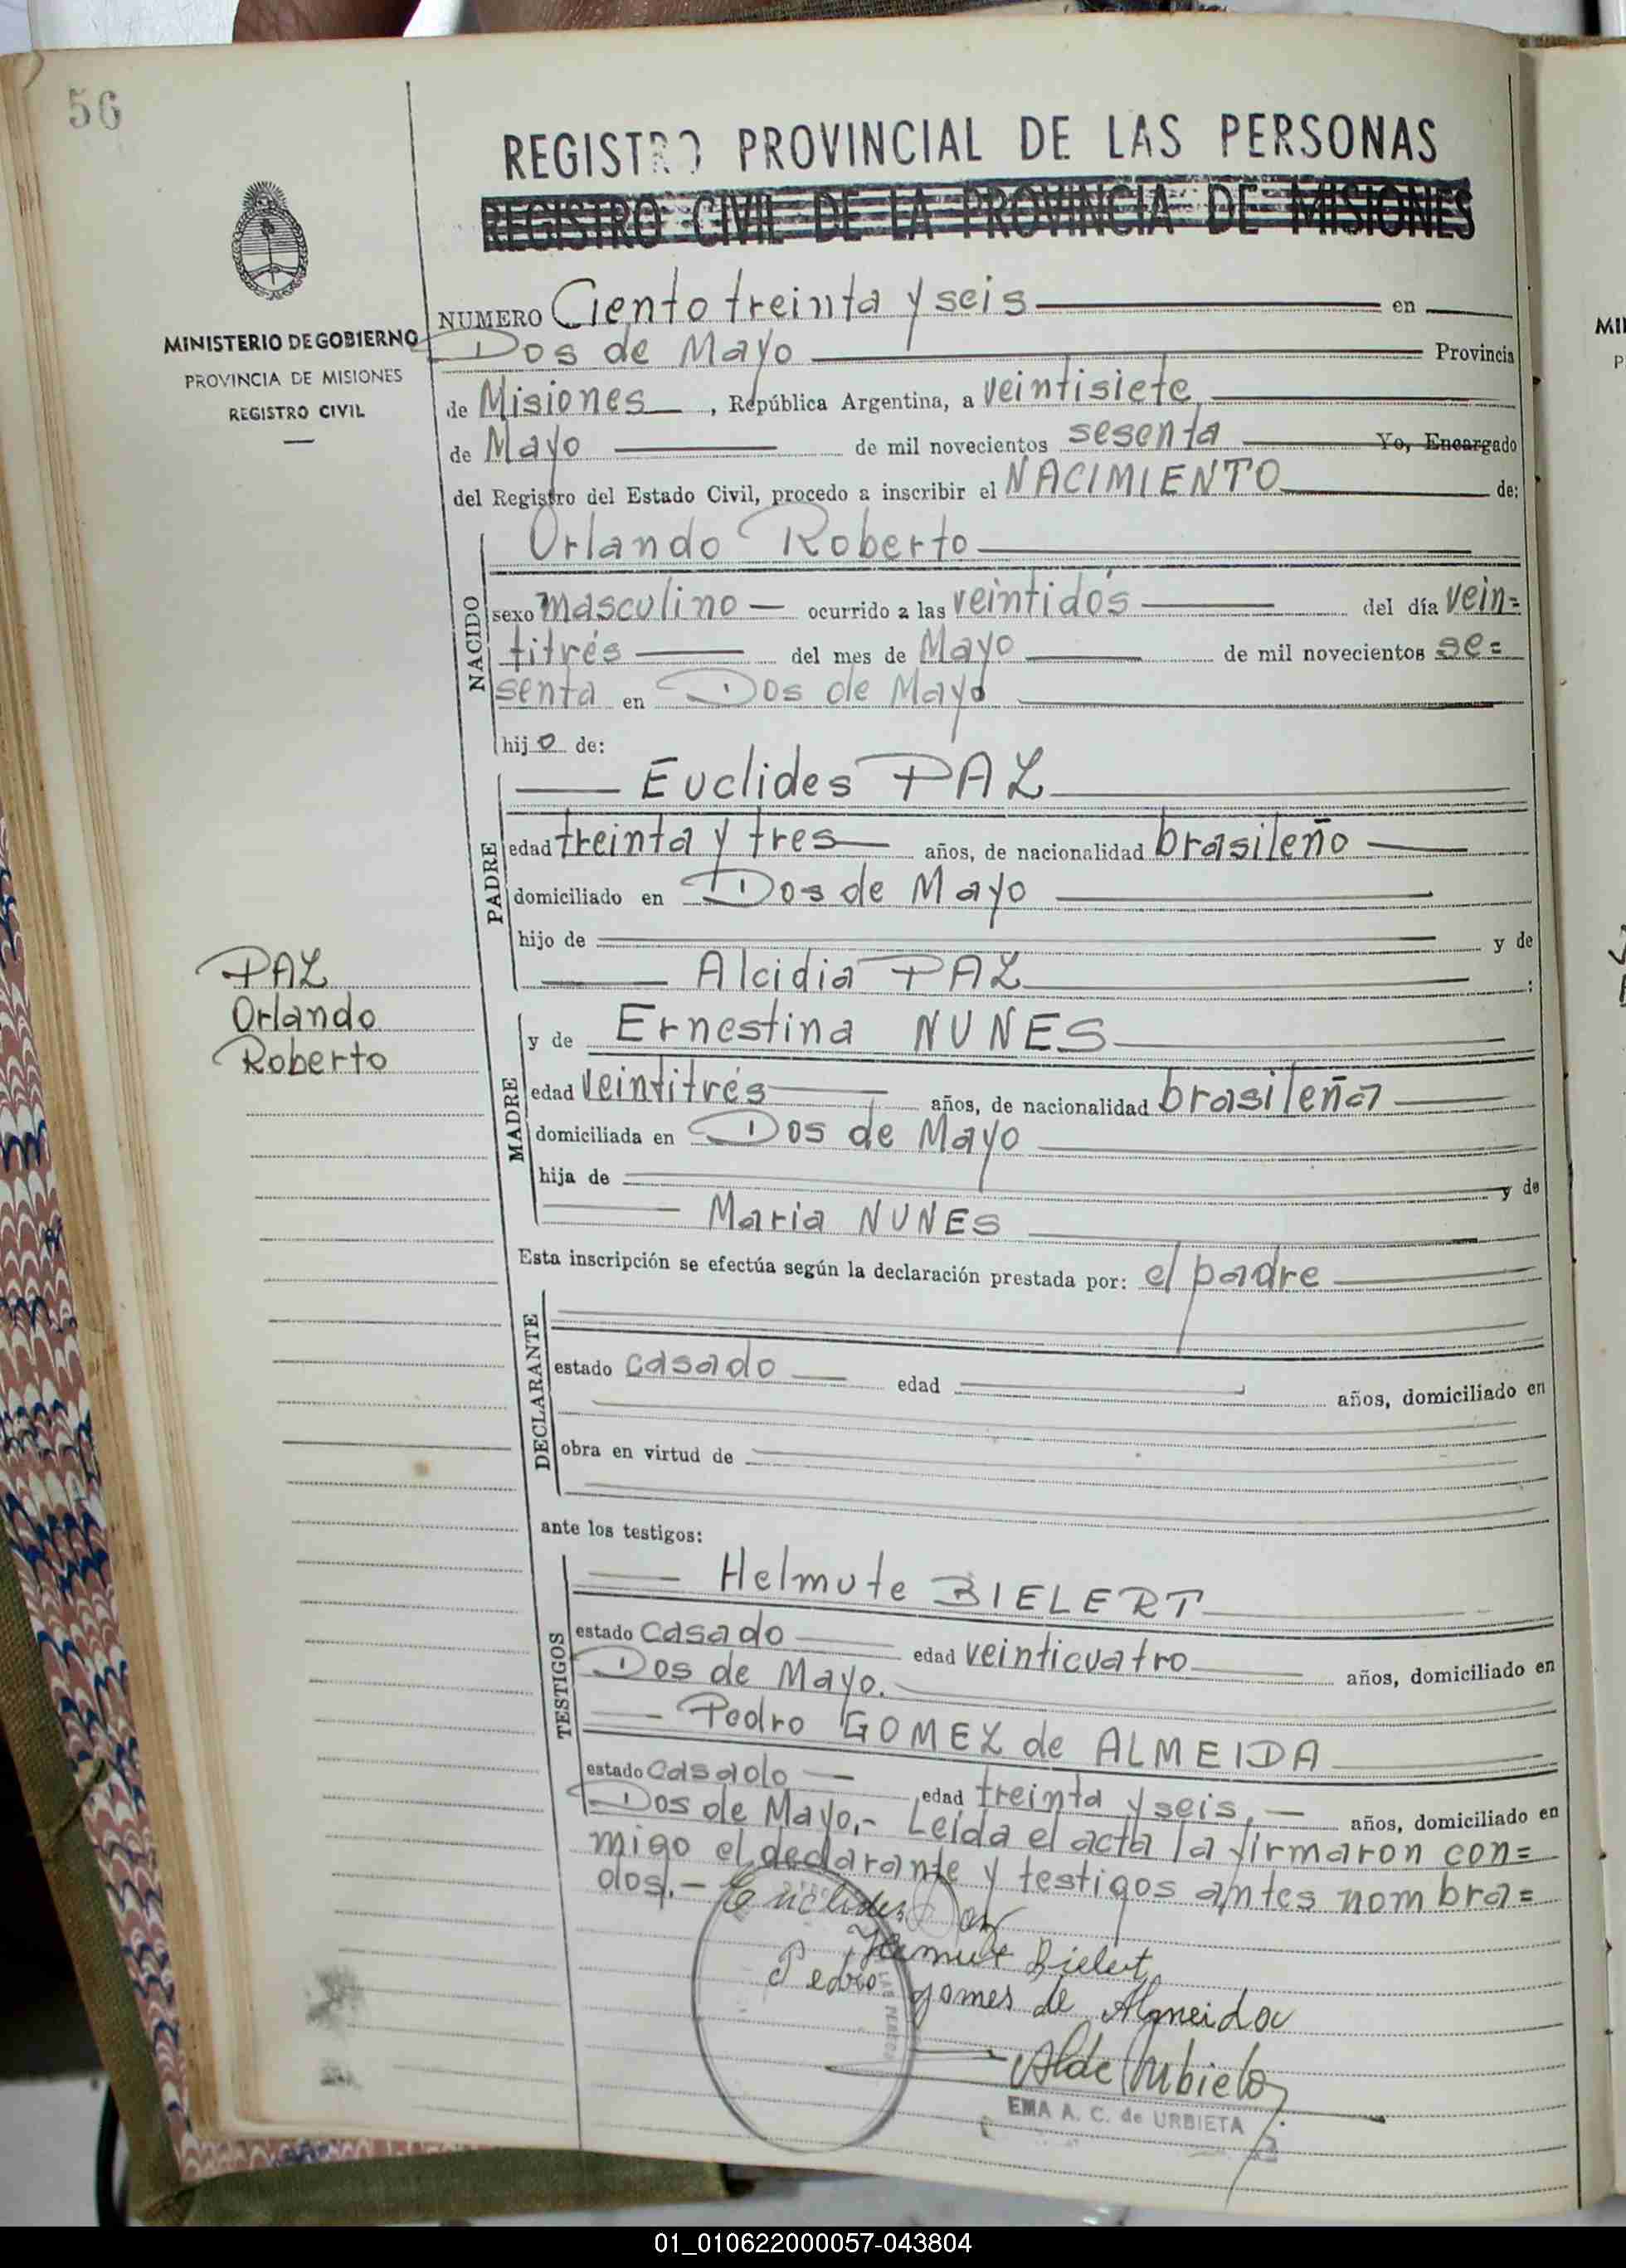 56
REGISTRO PROVINCIAL DE LAS PERSONAS
REGISTRO CIVIL DE LA PROVINCIA DE MISIONES
MINISTERIO DE GOBIERNO
PROVINCIA DE MISIONES
REGISTRO CIVIL
NUMERO Ciento treinta y seis en
Dos de Mayo Provincia
de Misiones, República Argentina, a veintisiete
de Mayo de mil novecientos sesenta Yo, Encargado
del Registro del Estado Civil, procedo a inscribir el NACIMIENTO de:
NACIDO
Orlando Roberto
sexo masculino ocurrido a las veintidós del día vein=
titrés del mes de Mayo de mil novecientos se=
senta en Dos de Mayo
hijo de:
PADRE
Euclides PAZ
edad treinta y tres años, de nacionalidad brasileño
domiciliado en Dos de Mayo
hijo de y de
Alcidia PAZ :
PAZ
Orlando
Roberto
MADRE
y de Ernestina NUNES
edad veintitrés años, de nacionalidad brasileña
domiciliada en Dos de Mayo
hija de y de
Maria NUNES
Esta inscripción se efectúa según la declaración prestada por: el padre
DECLARANTE
estado casado edad años, domiciliado en
obra en virtud de
ante los testigos:
TESTIGOS
Helmute BIELERT
estado casado edad veinticuatro años, domiciliado en
Dos de Mayo.
Pedro GOMEZ de ALMEIDA
estado casado edad treinta y seis.- años, domiciliado en
Dos de Mayo.- Leída el acta la firmaron con=
migo el declarante y testigos antes nombra=
dos.- Euclides Paz
Helmute Bielert
Pedro gomes de Almeida
EMA A. C. de URBIETA
MI
P
01_010622000057-043804